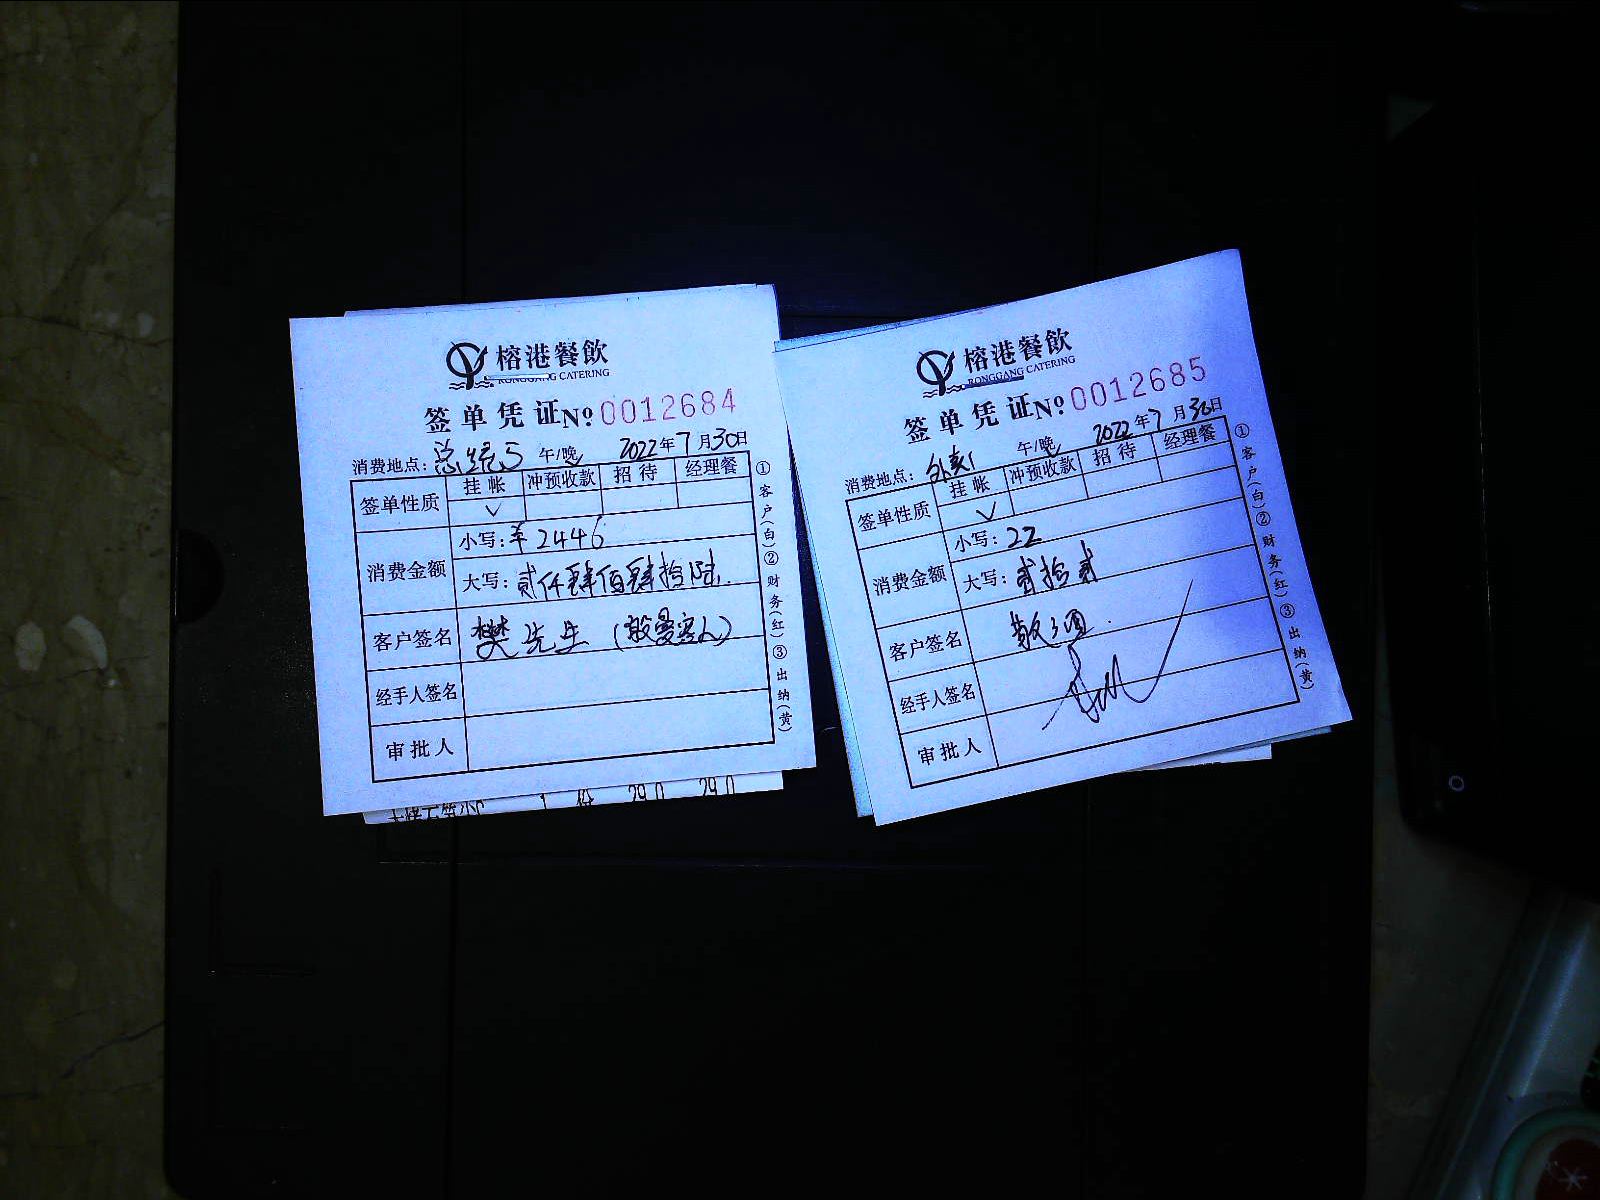 榕港餐飲
RONGGANG CATERING
签单凭证 No 0012684
消费地点: 午/晚 2022年7月30日
签单性质 挂帐 冲预收款 招待 经理餐
✓
消费金额 小写: ¥2446
大写: 贰仟肆佰肆拾陆
客户签名 樊先生
经手人签名
审批人
①客户(白)②财务(红)③出纳(黄)
1 份 29.0 29.0
榕港餐飲
RONGGANG CATERING
签单凭证 No 0012685
消费地点: 外卖 午/晚 2022年7月30日
签单性质 挂帐 冲预收款 招待 经理餐
✓
消费金额 小写: 22
大写: 贰拾贰
客户签名
经手人签名
审批人
①客户(白)②财务(红)③出纳(黄)